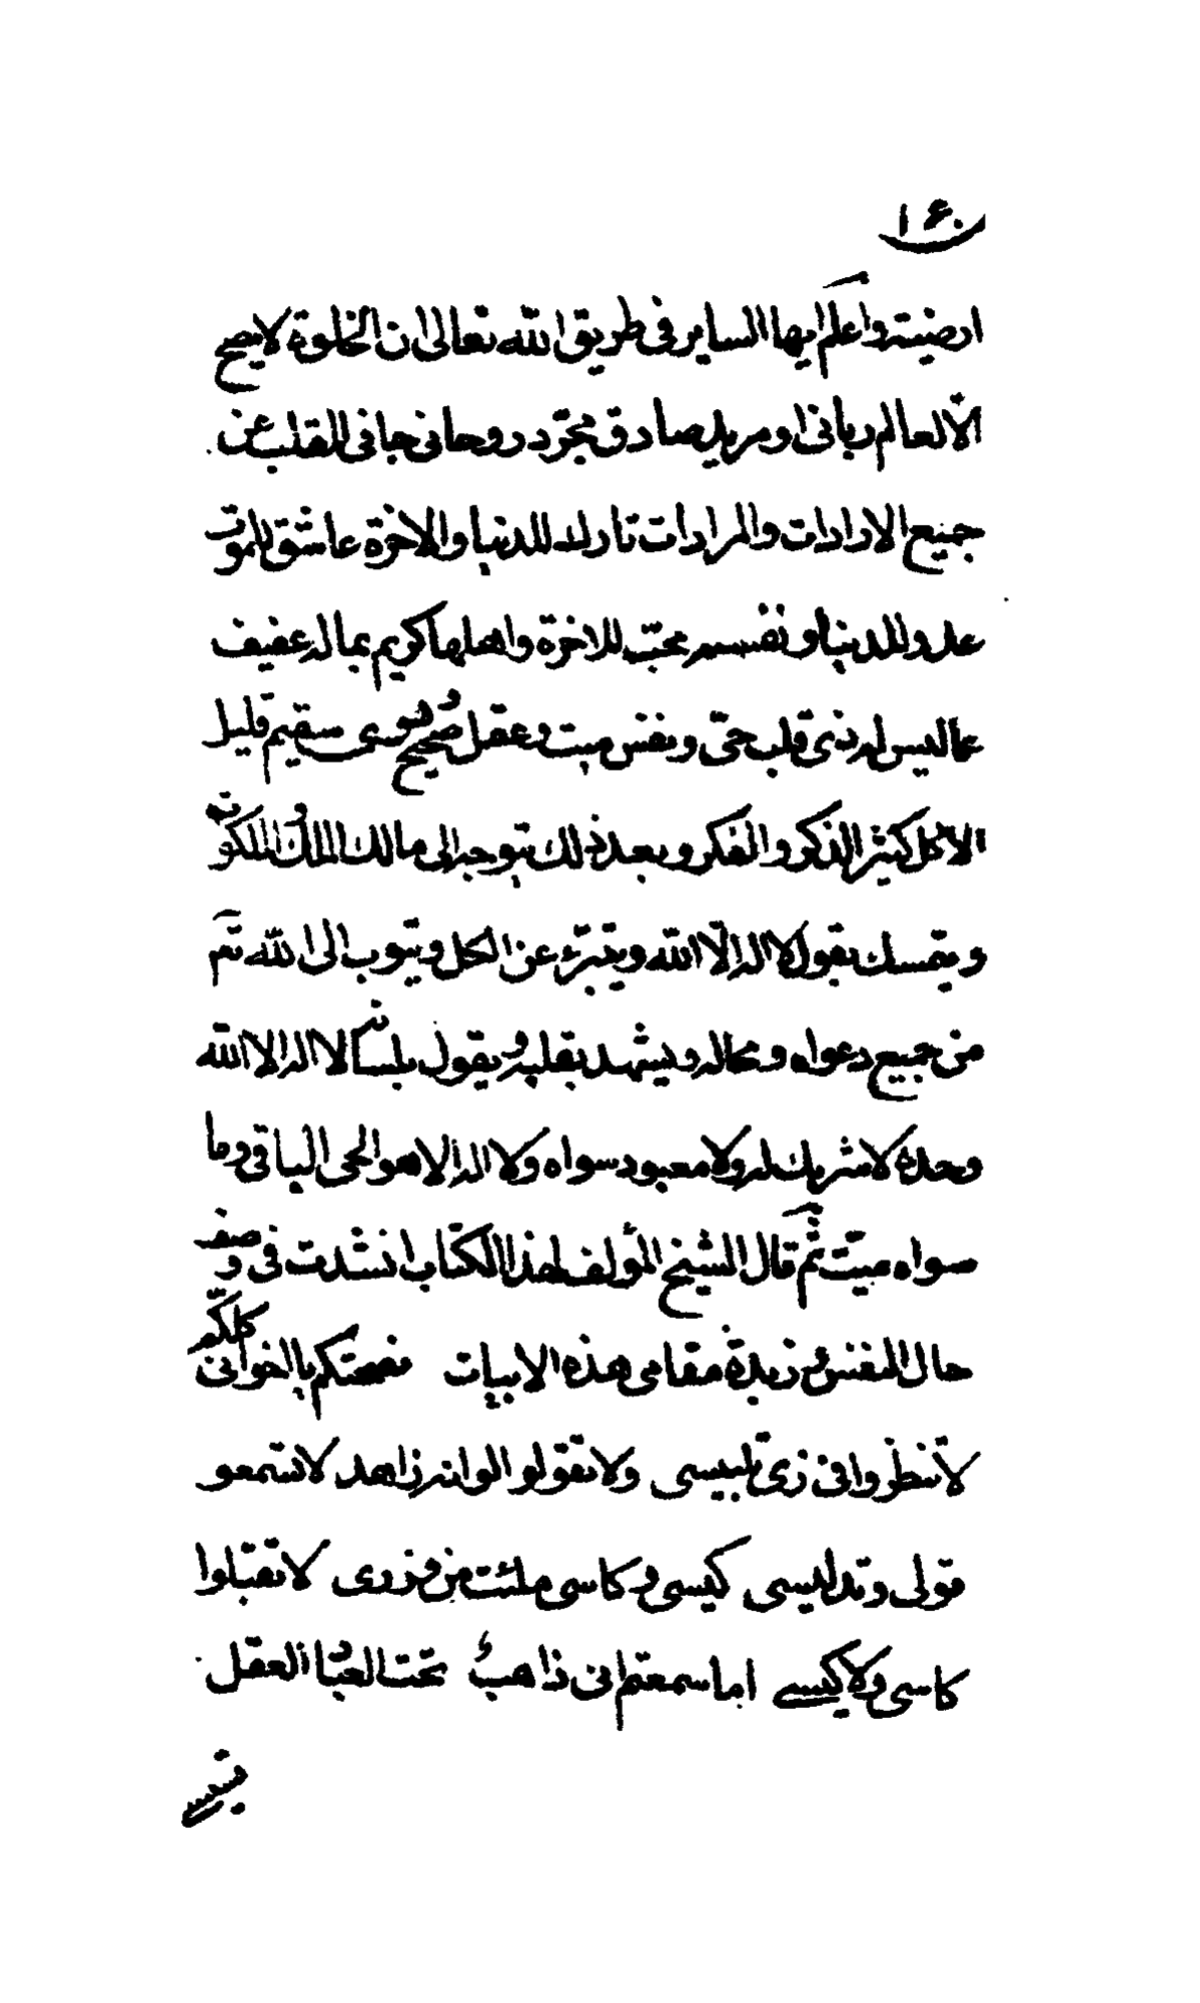 ١٦٠
ارضيته واعلم ايها الساير فى طريق الله تعالى ان الخلوة لا يصح
الّا لعالم ربانى او مريد صادق مجرّد روحانى جافى القلب عن
جميع الارادات والمرادات تارك للدنيا والاخرة عاشق للموت
عدو للدنيا ونفسه محبّ للاخرة واهلها كريم بماله عفيف
عما ليس له ذى قلب حىّ ونفس ميت وعقل صحيح وهوى سقيم قليل
الاكل كثير الذكر والفكر وبعد ذلك يتوجه الى مالك الملك والملكوت
ويتمسك بقول لا اله الّا الله ويتبرّء عن الكل ويتوب الى الله تعم
من جميع دعواه ومحاله ويشهد بقلبه ويقول بلسانه لا اله الا الله
وحده لا شريك له ولا معبود سواه ولا اله الا هو الحى الباقى وما
سواه ميّت ثم قال الشيخ المؤلف لهذا الكتاب انشدت فى وصف
حال النفس وزبدة مقامى هذه الابيات نصحتكم يا اخوانى كلكم
لا تنظروا فى زىّ تلبيسى ولا تقولو الوانه زاهد لا تسمعو
قولى وتدليسى كيسى وكاسى ملئت من وزرى لا تقبلوا
كاسى ولا كيسى اما سمعتم انى ذاهبٌ تحت العبا العقل